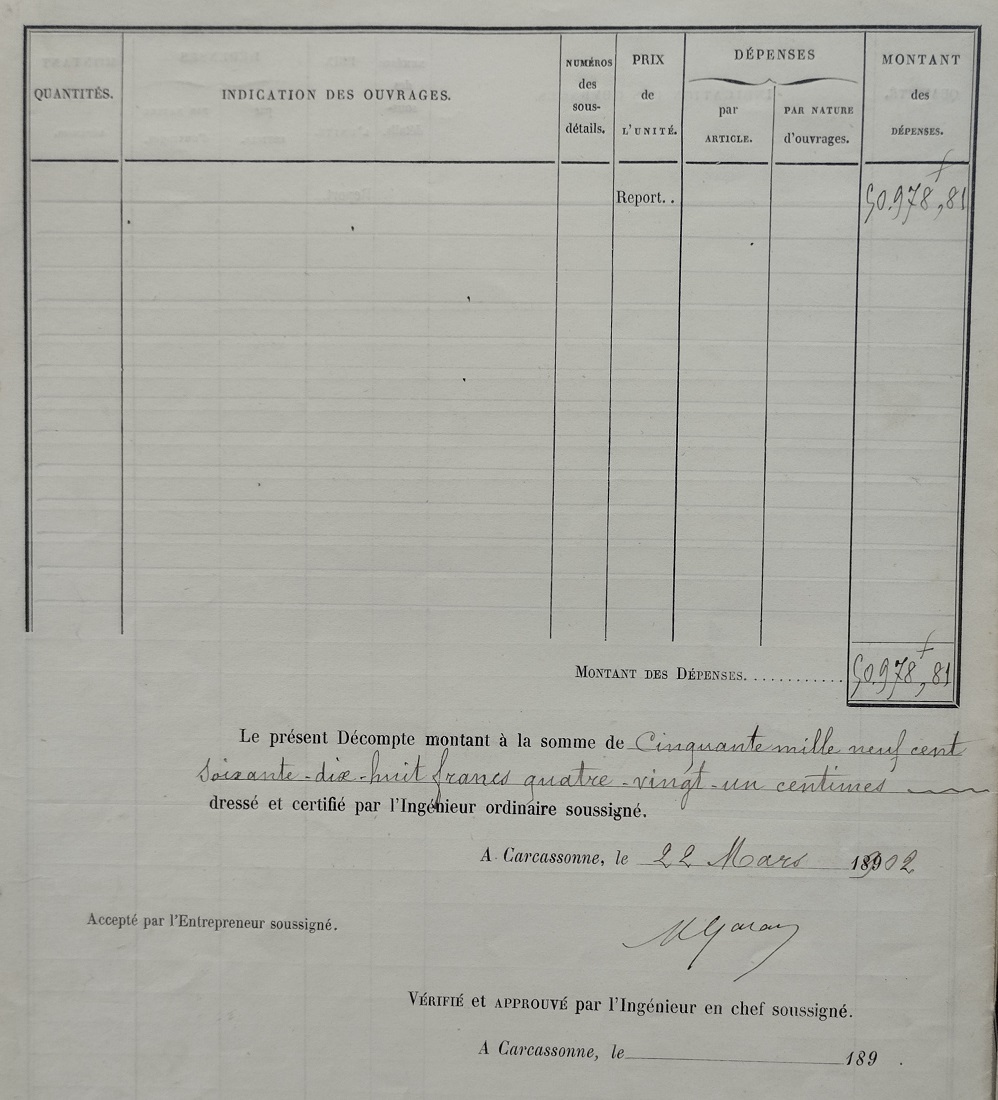 QUANTITÉS.
INDICATION DES OUVRAGES.
NUMÉROS
des
sous-
détails.
PRIX
de
L'UNITÉ.
DÉPENSES
par
ARTICLE.
PAR NATURE
d'ouvrages.
MONTANT
des
DÉPENSES.
Report. . 50.978,81
MONTANT DES DÉPENSES. . . . . . . . . . . . 50.978,81
Le présent Décompte montant à la somme de Cinquante mille neuf cent
soixante-dix-huit francs quatre-vingt-un centimes
dressé et certifié par l'Ingénieur ordinaire soussigné.
A Carcassonne, le 22 Mars 1902
Accepté par l'Entrepreneur soussigné.
VÉRIFIÉ et APPROUVÉ par l'Ingénieur en chef soussigné.
A Carcassonne, le 189 .